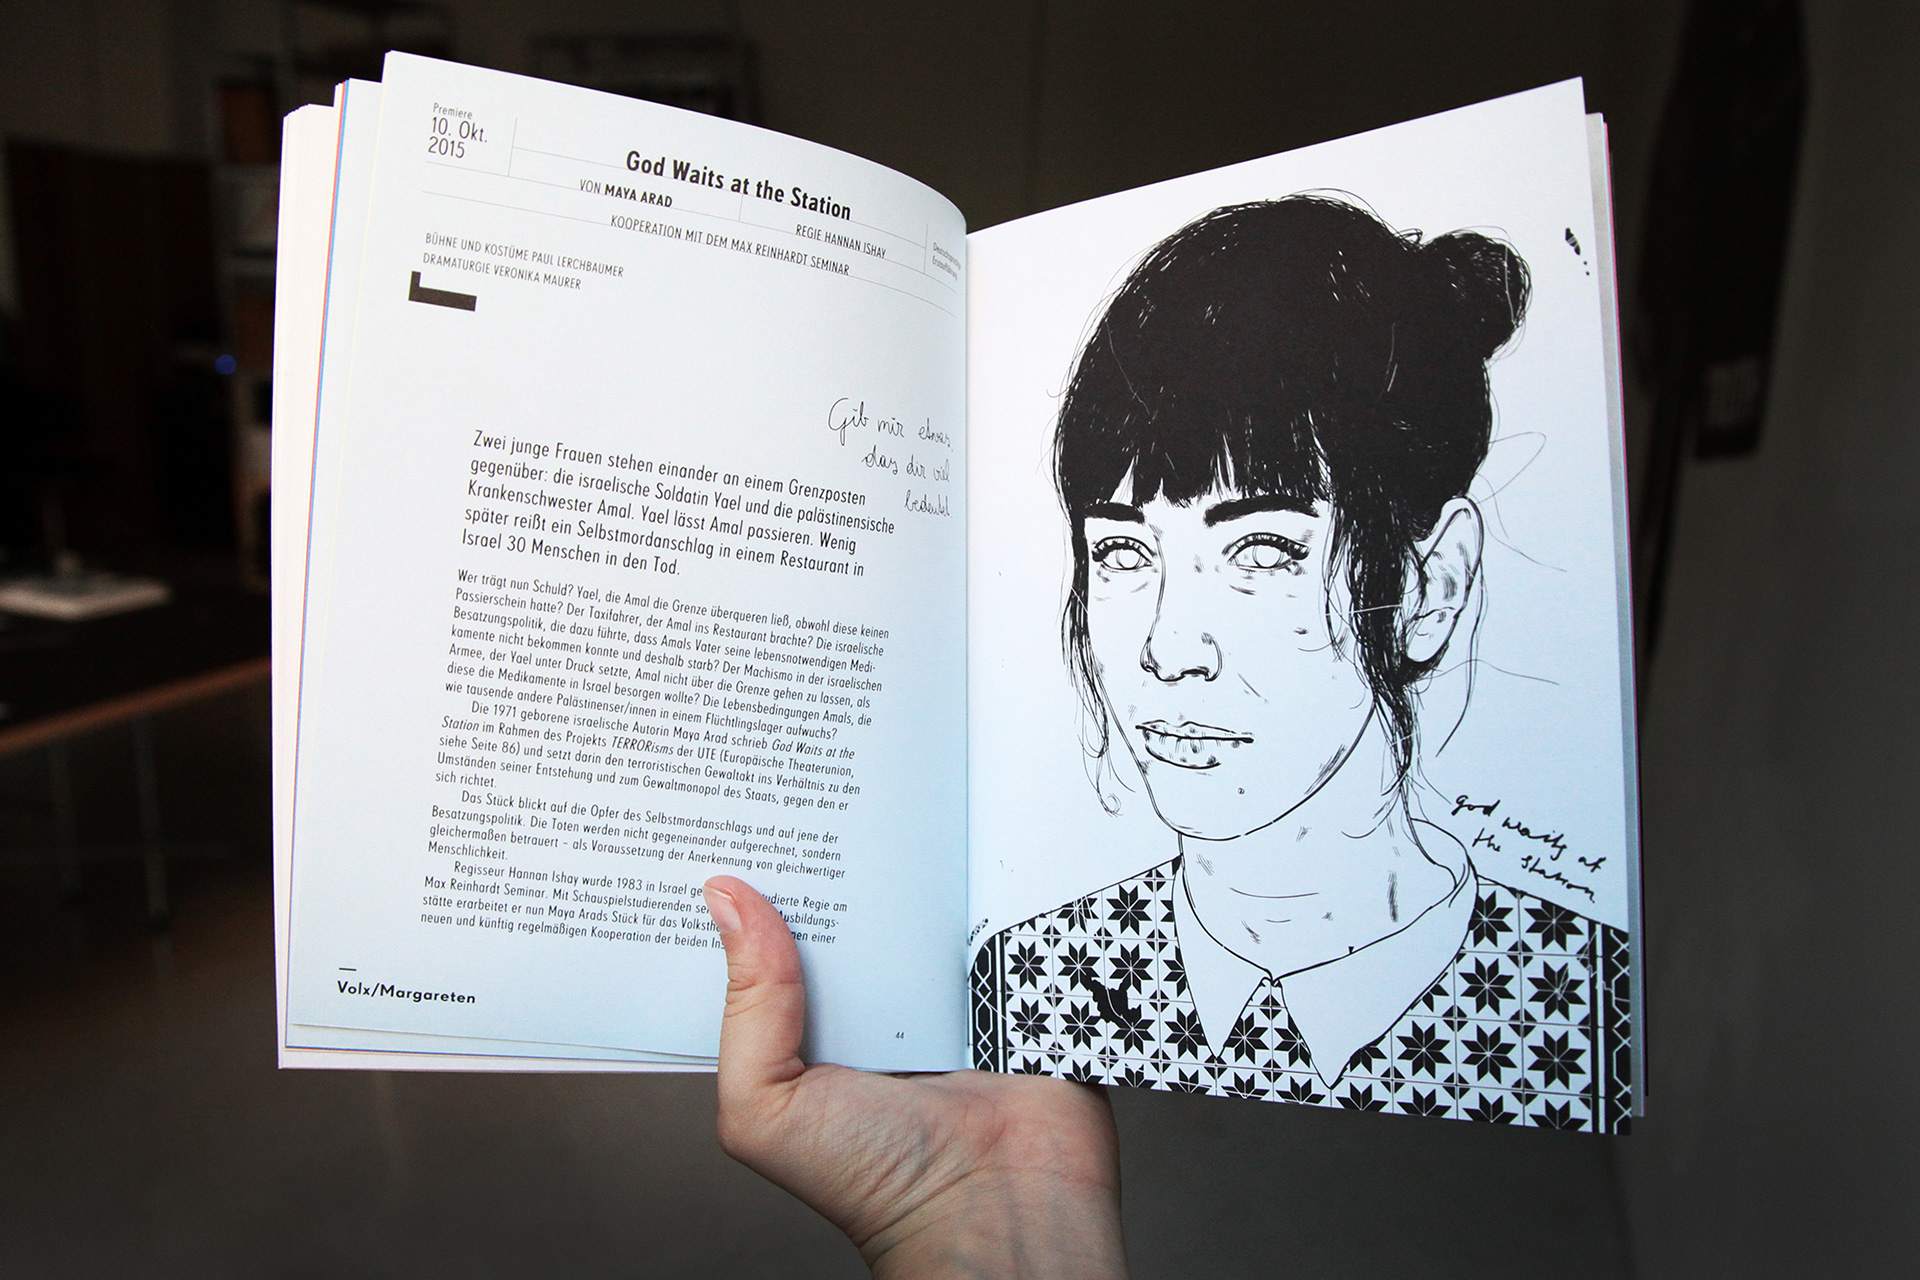 Premiere
10. Okt.
2015
God Waits at the Station
VON MAYA ARAD
REGIE HANNAN ISHAY
KOOPERATION MIT DEM MAX REINHARDT SEMINAR
Deutschsprachige
Erstaufführung
BÜHNE UND KOSTÜME PAUL LERCHBAUMER
DRAMATURGIE VERONIKA MAURER
Gib mir etwas,
das dir viel
bedeutet
Zwei junge Frauen stehen einander an einem Grenzposten
gegenüber: die israelische Soldatin Yael und die palästinensische
Krankenschwester Amal. Yael lässt Amal passieren. Wenig
später reißt ein Selbstmordanschlag in einem Restaurant in
Israel 30 Menschen in den Tod.
Wer trägt nun Schuld? Yael, die Amal die Grenze überqueren ließ, obwohl diese keinen
Passierschein hatte? Der Taxifahrer, der Amal ins Restaurant brachte? Die israelische
Besatzungspolitik, die dazu führte, dass Amals Vater seine lebensnotwendigen Medi-
kamente nicht bekommen konnte und deshalb starb? Der Machismo in der israelischen
Armee, der Yael unter Druck setzte, Amal nicht über die Grenze gehen zu lassen, als
diese die Medikamente in Israel besorgen wollte? Die Lebensbedingungen Amals, die
wie tausende andere Palästinenser/innen in einem Flüchtlingslager aufwuchs?
Die 1971 geborene israelische Autorin Maya Arad schrieb God Waits at the
Station im Rahmen des Projekts TERRORisms der UTE (Europäische Theaterunion,
siehe Seite 86) und setzt darin den terroristischen Gewaltakt ins Verhältnis zu den
Umständen seiner Entstehung und zum Gewaltmonopol des Staats, gegen den er
sich richtet.
Das Stück blickt auf die Opfer des Selbstmordanschlags und auf jene der
Besatzungspolitik. Die Toten werden nicht gegeneinander aufgerechnet, sondern
gleichermaßen betrauert – als Voraussetzung der Anerkennung von gleichwertiger
Menschlichkeit.
Regisseur Hannan Ishay wurde 1983 in Israel ge udierte Regie am
Max Reinhardt Seminar. Mit Schauspielstudierenden sei Ausbildungs-
stätte erarbeitet er nun Maya Arads Stück für das Volksthe en einer
neuen und künftig regelmäßigen Kooperation der beiden Ins
Volx/Margareten
44
god waits at
the station